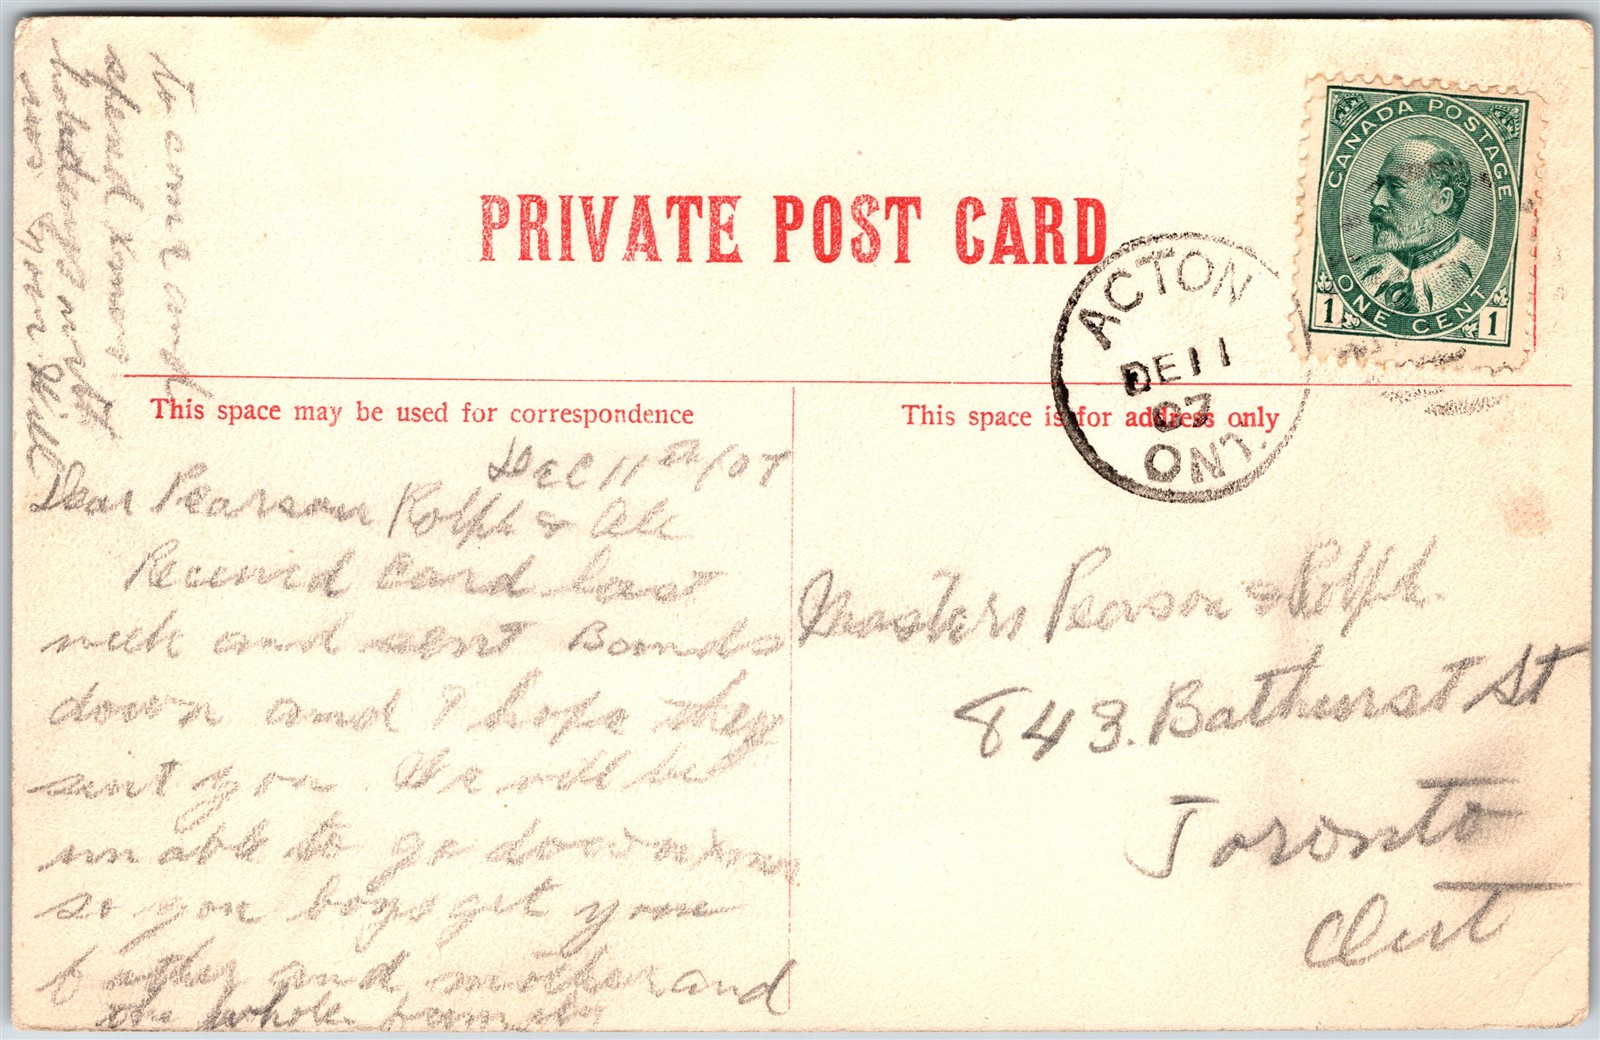 PRIVATE POST CARD
CANADA POSTAGE
ONE CENT
1 1
ACTON
DE 11
07
ONT.
This space may be used for correspondence
This space is for address only
Dec 11th/07
Dear Pearson Rolph & All
Received card last
week and sent Bonds
down and I hope they
suit you. We will be
unable to go down xmas
so you boys get your
father and mother and
the whole family
to come and
spend xmas
holidays with
Masters Pearson & Rolph.
843. Bathurst St
Toronto
Ont